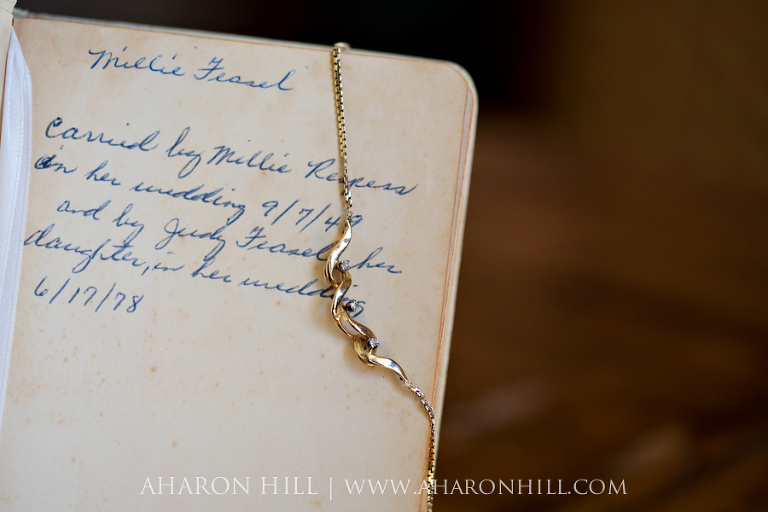 Millie Feasel
Carried by Millie
in her wedding 9/7/49
and by Judy Feasel, her
daughter, in her wedding
6/17/78
AHARON HILL | WWW.AHARONHILL.COM